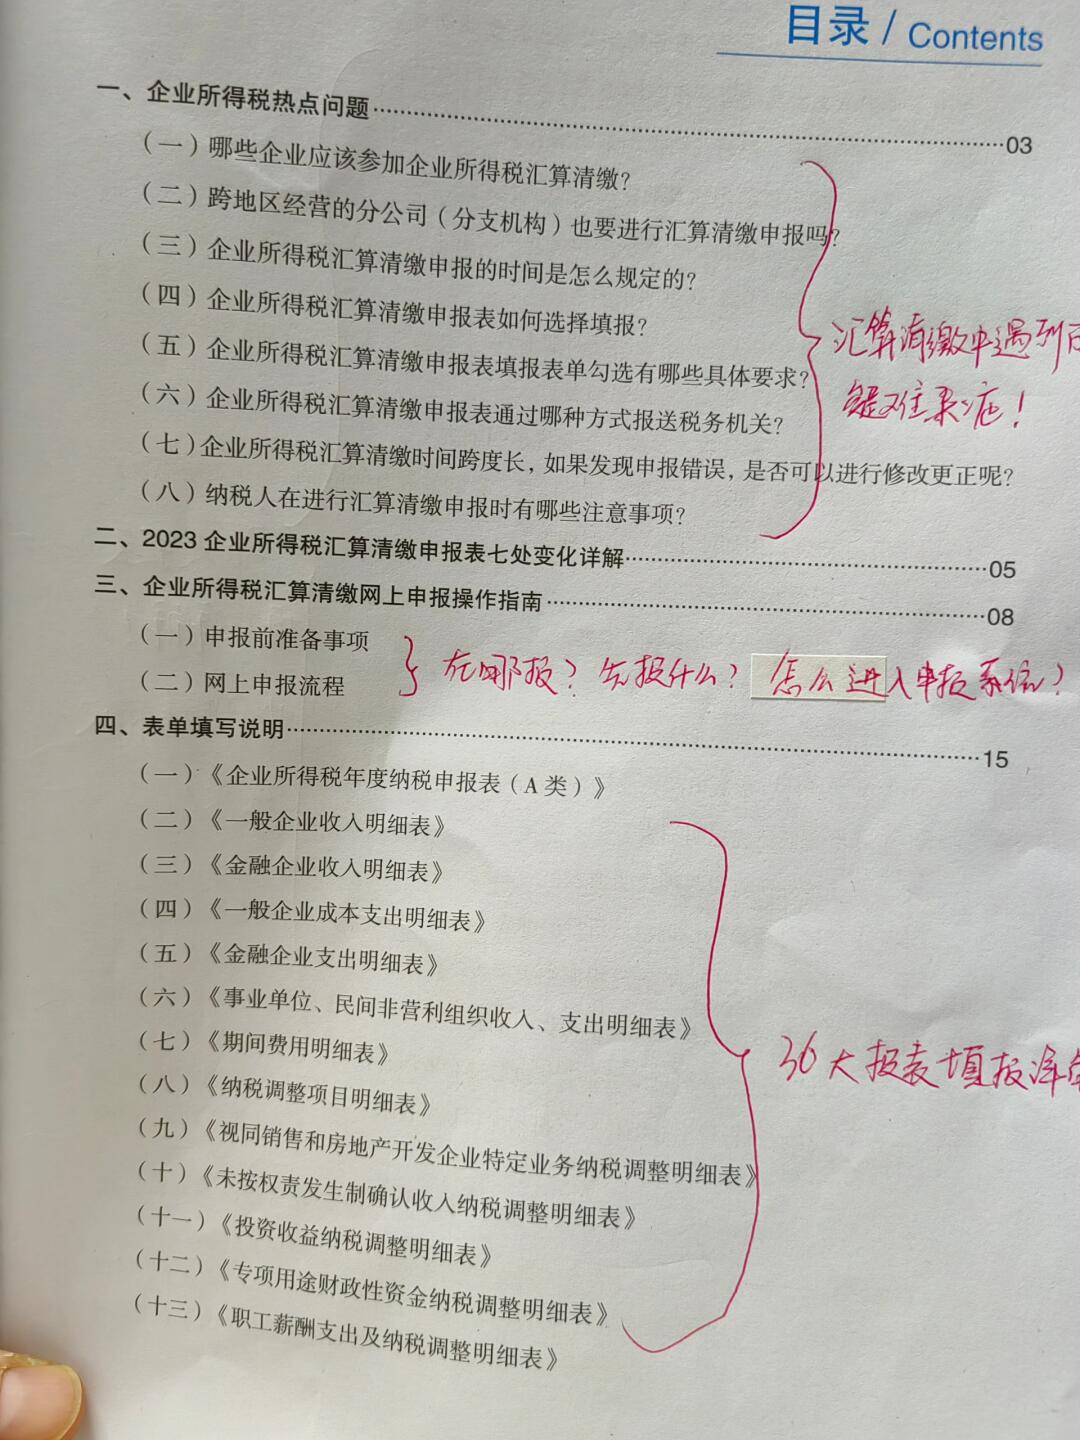 目录 / Contents
一、企业所得税热点问题……03
（一）哪些企业应该参加企业所得税汇算清缴？
（二）跨地区经营的分公司（分支机构）也要进行汇算清缴申报吗？
（三）企业所得税汇算清缴申报的时间是怎么规定的？
（四）企业所得税汇算清缴申报表如何选择填报？
（五）企业所得税汇算清缴申报表填报表单勾选有哪些具体要求？
（六）企业所得税汇算清缴申报表通过哪种方式报送税务机关？
（七）企业所得税汇算清缴时间跨度长，如果发现申报错误，是否可以进行修改更正呢？
（八）纳税人在进行汇算清缴申报时有哪些注意事项？
汇算清缴中遇到
疑难杂症！
二、2023 企业所得税汇算清缴申报表七处变化详解……05
三、企业所得税汇算清缴网上申报操作指南……08
（一）申报前准备事项
（二）网上申报流程
在哪报？先报什么？怎么进入申报系统？
四、表单填写说明……15
（一）《企业所得税年度纳税申报表（A 类）》
（二）《一般企业收入明细表》
（三）《金融企业收入明细表》
（四）《一般企业成本支出明细表》
（五）《金融企业支出明细表》
（六）《事业单位、民间非营利组织收入、支出明细表》
（七）《期间费用明细表》
（八）《纳税调整项目明细表》
（九）《视同销售和房地产开发企业特定业务纳税调整明细表》
（十）《未按权责发生制确认收入纳税调整明细表》
（十一）《投资收益纳税调整明细表》
（十二）《专项用途财政性资金纳税调整明细表》
（十三）《职工薪酬支出及纳税调整明细表》
36大报表填报详